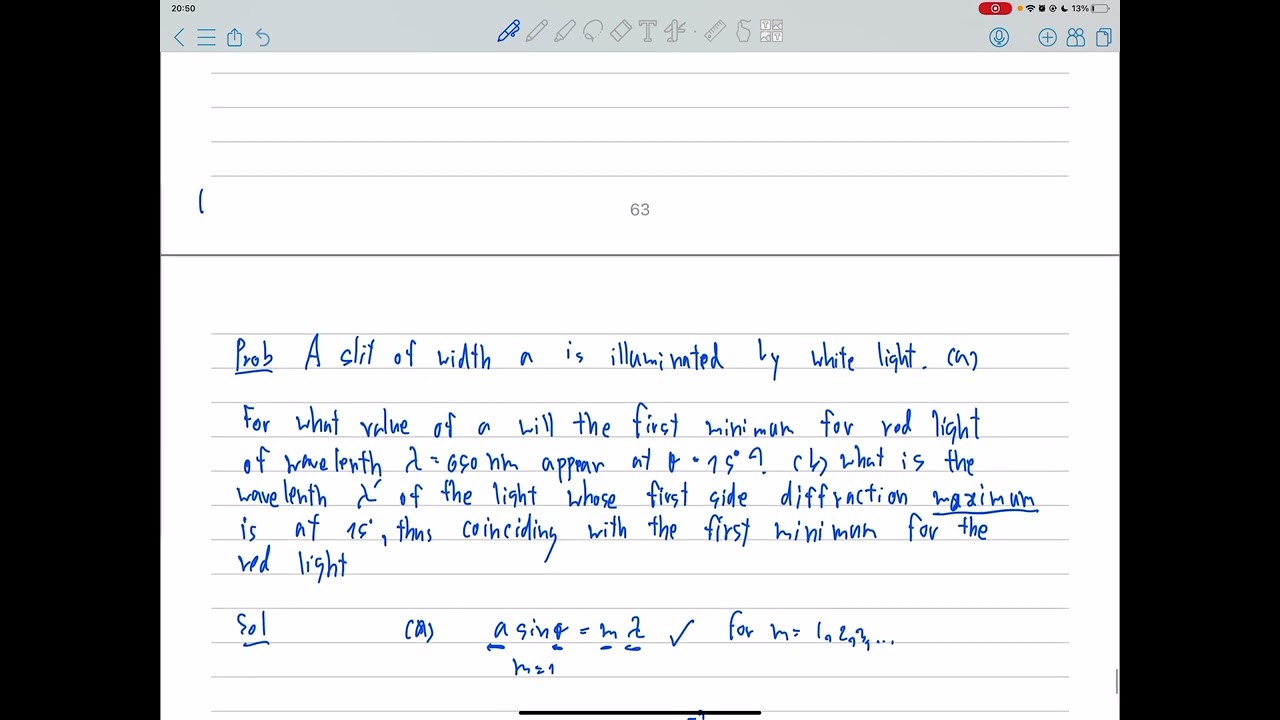 20:50
13%
63
Prob A slit of width a is illuminated by white light. (a)
For what value of a will the first minimum for red light
of wavelenth λ = 650 nm appear at θ = 15°? (b) what is the
wavelenth λ' of the light whose first side diffraction maximum
is at 15°, thus coinciding with the first minimum for the
red light
Sol (a) a sinθ = m λ ✓ for m = 1, 2, 3, ...
m=1